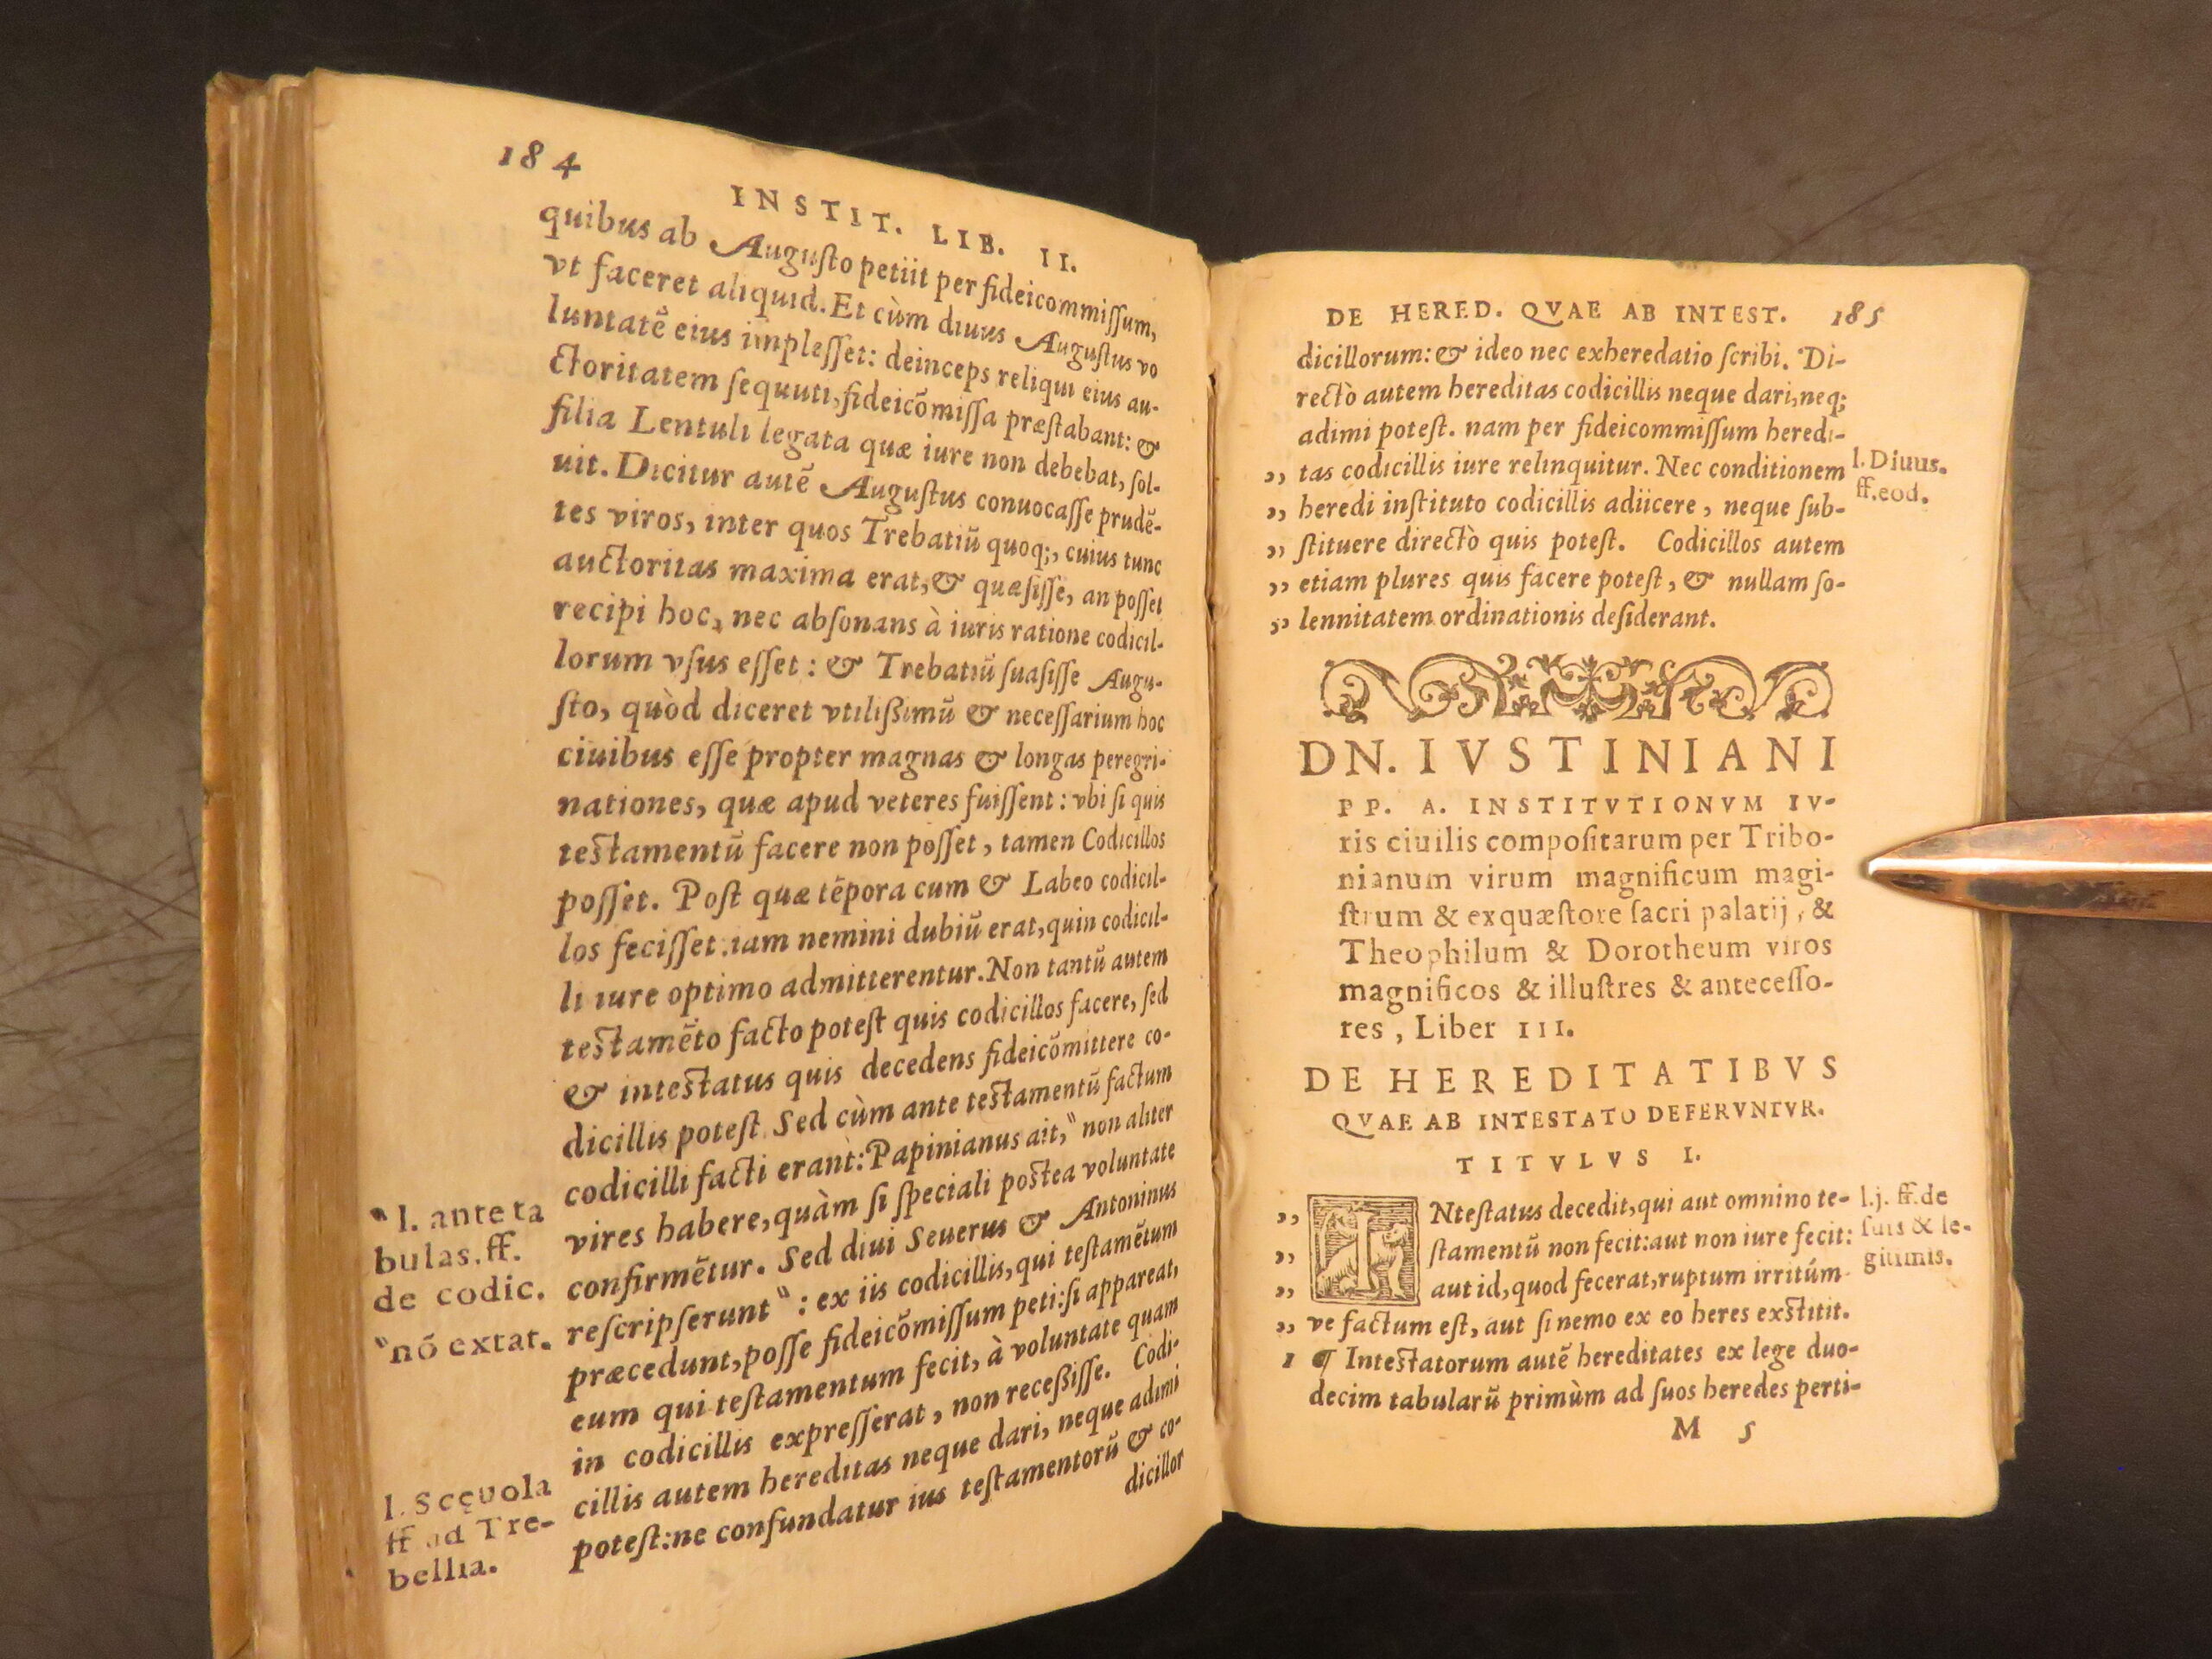 184
INSTIT. LIB. II.
quibus ab Auguſto petiit per fideicommiſſum,
vt faceret aliquid. Et cùm diuus Auguſtus vo
luntatē eius impleſſet: deinceps reliqui eius au-
ctoritatem ſequuti, fideicōmiſſa præſtabant: &
filia Lentuli legata quæ iure non debebat, ſol-
uit. Dicitur autē Auguſtus conuocaſſe prudē-
tes viros, inter quos Trebatiū quoq;, cuius tunc
auctoritas maxima erat, & quæſiſſe, an poſſet
recipi hoc, nec abſonans à iuris ratione codicil-
lorum vſus eſſet: & Trebatiū ſuaſiſſe Augu-
ſto, quòd diceret vtiliſſimū & neceſſarium hoc
ciuibus eſſe propter magnas & longas peregri-
nationes, quæ apud veteres fuiſſent: vbi ſi quis
teſtamentū facere non poſſet, tamen Codicillos
poſſet. Poſt quæ tēpora cum & Labeo codicil-
los feciſſet: iam nemini dubiū erat, quin codicil-
li iure optimo admitterentur. Non tantū autem
teſtamēto facto poteſt quis codicillos facere, ſed
& inteſtatus quis decedens fideicōmittere co-
dicillis poteſt. Sed cùm ante teſtamentū factum
codicilli facti erant: Papinianus ait," non aliter
vires habere, quàm ſi ſpeciali poſtea voluntate
confirmētur. Sed diui Seuerus & Antoninus
reſcripſerunt": ex iis codicillis, qui teſtamētum
præcedunt, poſſe fideicōmiſſum peti: ſi appareat,
eum qui teſtamentum fecit, à voluntate quam
in codicillis expreſſerat, non receßiſſe. Codi-
cillis autem hereditas neque dari, neque adimi
poteſt: ne confundatur ius teſtamentorū & co-
dicillor
"l. ante ta
bulas. ff.
de codic.
"nō extat.
l. Scęuola
ff ad Tre-
bellia.
DE HERED. QVAE AB INTEST. 185
dicillorum: & ideo nec exheredatio ſcribi. Di-
rectò autem hereditas codicillis neque dari, neq;
adimi poteſt. nam per fideicommiſſum heredi-
,, tas codicillis iure relinquitur. Nec conditionem
,, heredi inſtituto codicillis adiicere, neque ſub-
,, ſtituere directò quis poteſt. Codicillos autem
,, etiam plures quis facere poteſt, & nullam ſo-
,, lennitatem ordinationis deſiderant.
l. Diuus.
ff. eod.
DN. IVSTINIANI
PP. A. INSTITVTIONVM IV-
ris ciuilis compoſitarum per Tribo-
nianum virum magnificum magi-
ſtrum & exquæſtore ſacri palatij, &
Theophilum & Dorotheum viros
magnificos & illuſtres & anteceſſo-
res, Liber III.
DE HEREDITATIBVS
QVAE AB INTESTATO DEFERVNTVR.
TITVLVS I.
,, INteſtatus decedit, qui aut omnino te-
,, ſtamentū non fecit: aut non iure fecit:
,, aut id, quod fecerat, ruptum irritúm
,, ve factum eſt, aut ſi nemo ex eo heres exſtitit.
1 ¶ Inteſtatorum autē hereditates ex lege duo-
decim tabularū primùm ad ſuos heredes perti-
M 5
l. j. ff. de
ſuis & le-
gitimis.